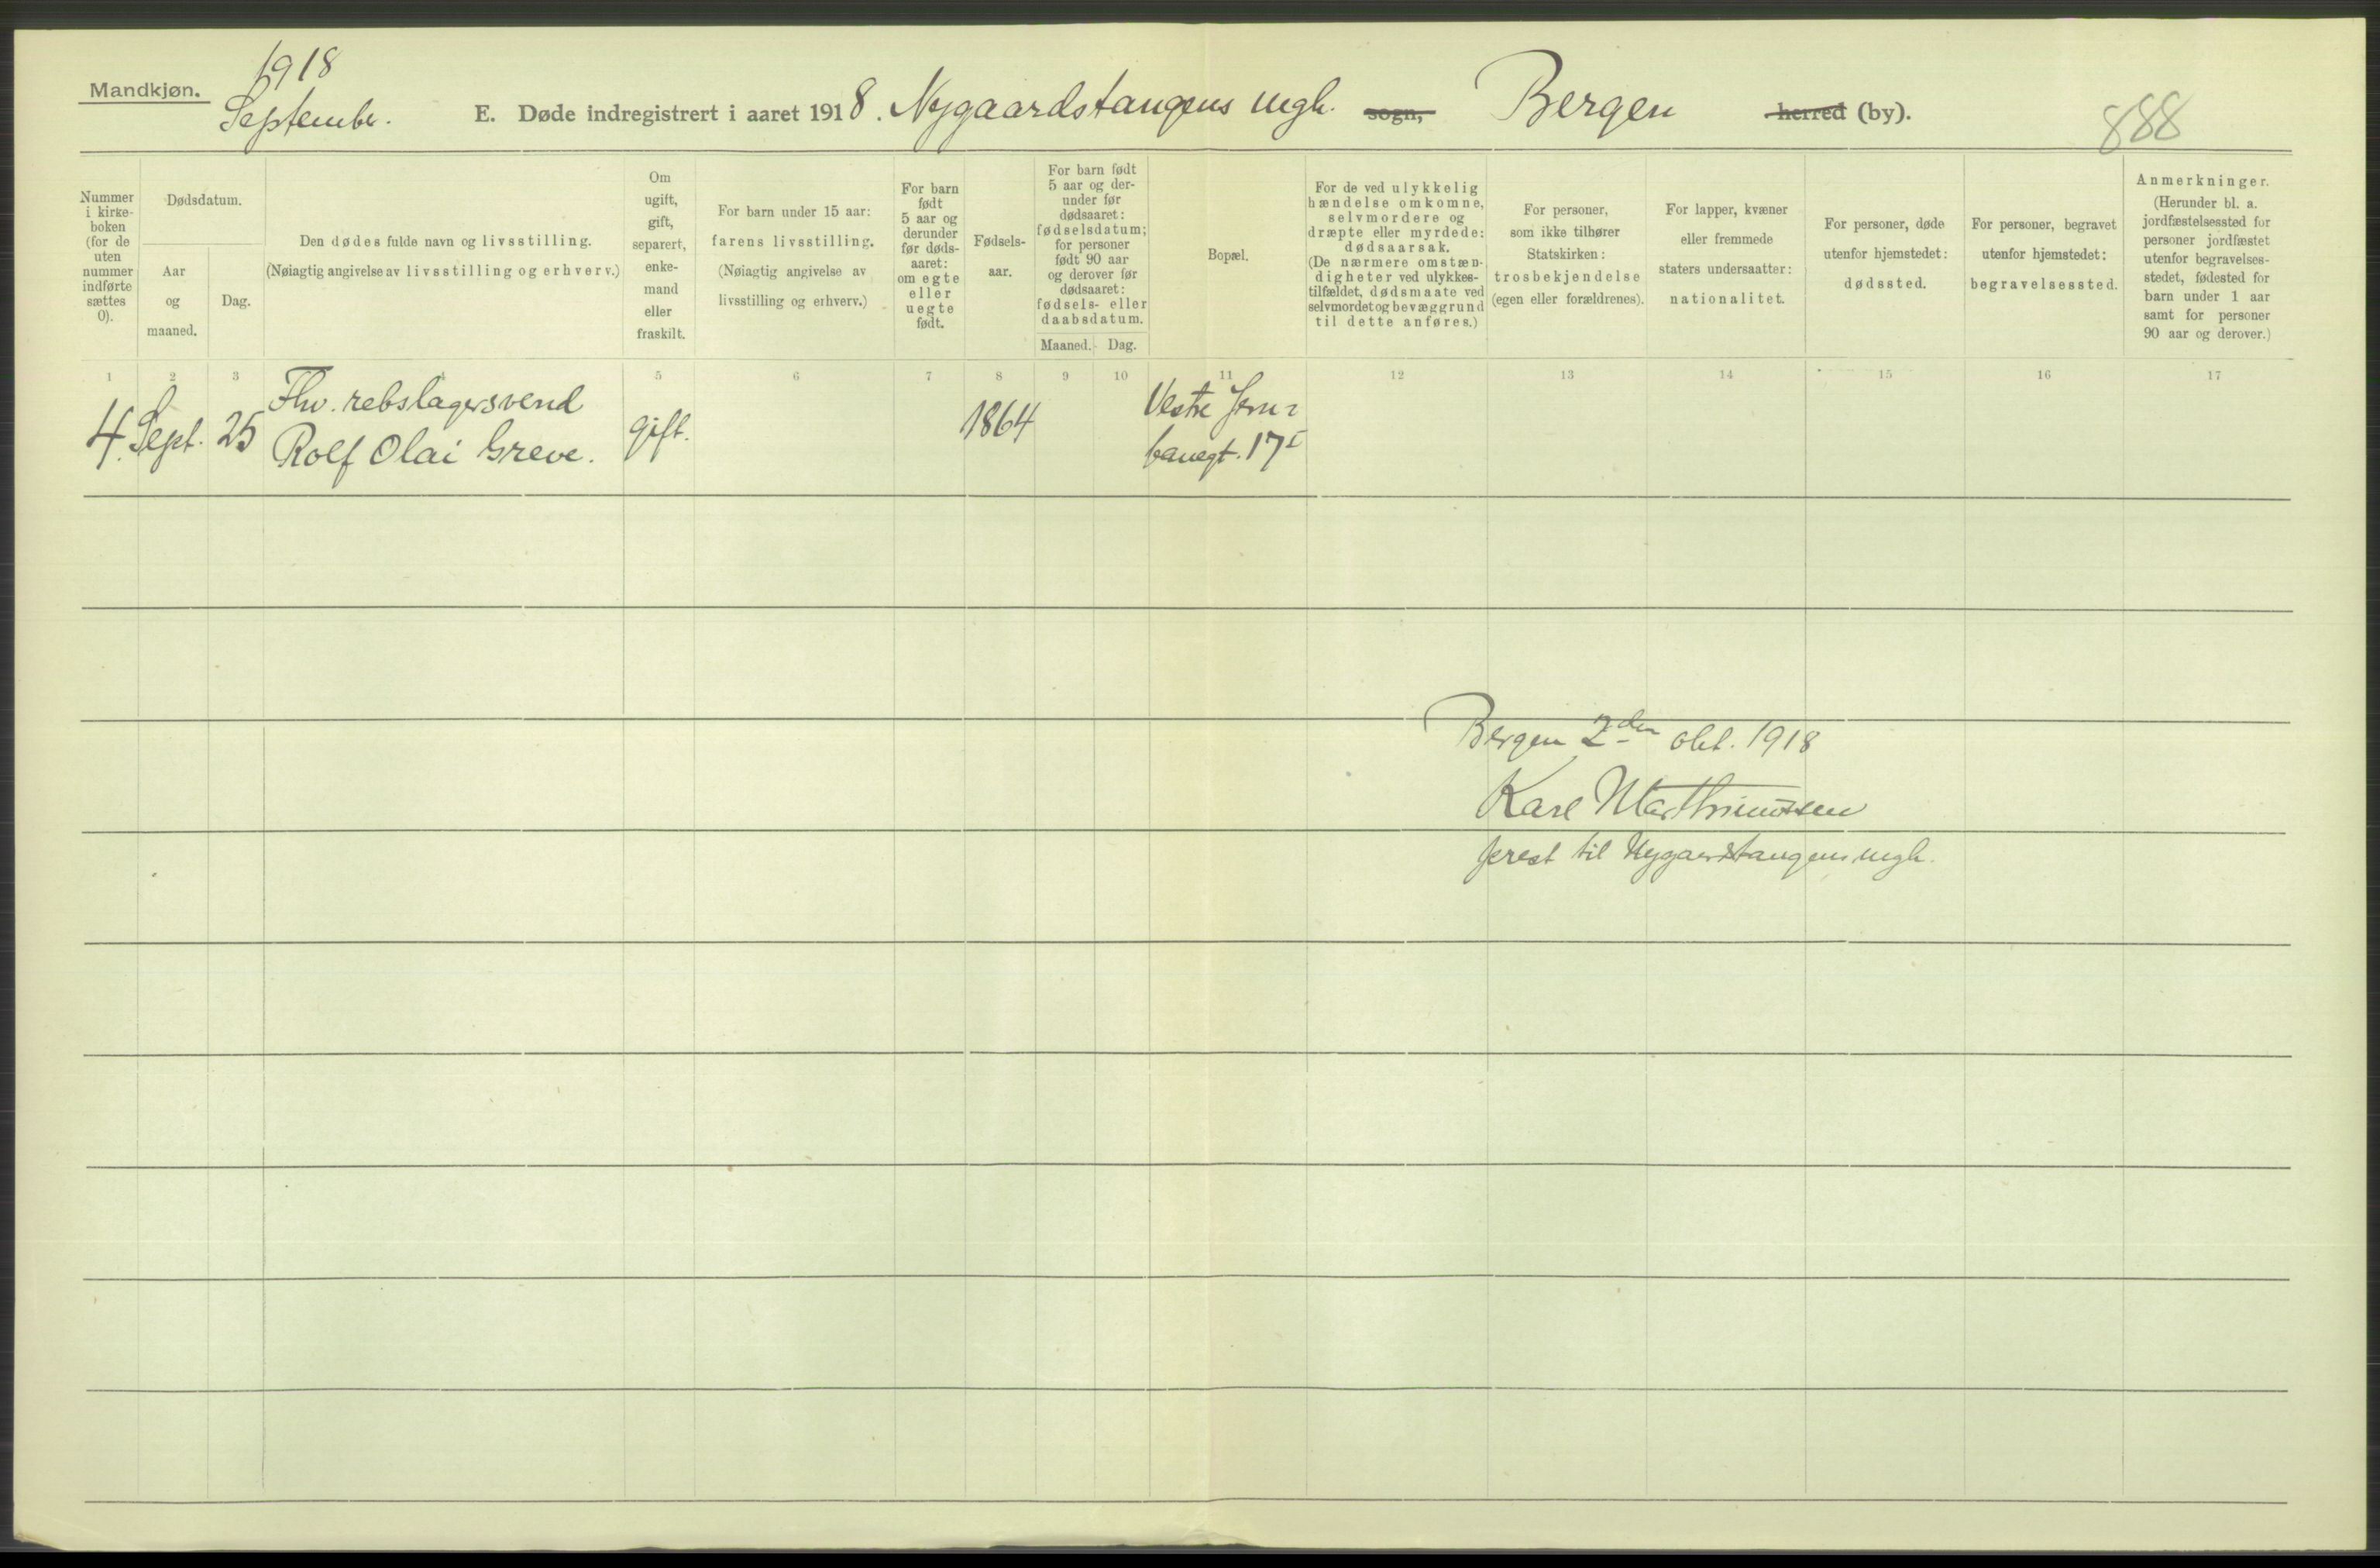 1918
Mandkjøn.
September.
E. Døde indregistrert i aaret 1918. Nygaardstangens mgh. sogn, Bergen herred (by).
888
Nummer i kirke-boken (for de uten nummer indførte sættes 0).
Dødsdatum.
Aar og maaned.
Dag.
Den dødes fulde navn og livsstilling.
(Nøiagtig angivelse av livsstilling og erhverv.)
Om ugift, gift, separert, enke-mand eller fraskilt.
For barn under 15 aar:
farens livsstilling.
(Nøiagtig angivelse av
livsstilling og erhverv.)
For barn født 5 aar og derunder før døds-aaret: om egte eller uegte født.
Fødsels-aar.
For barn født 5 aar og der-under før dødsaaret: fødselsdatum; for personer født 90 aar og derover før dødsaaret: fødsels- eller daabsdatum.
Maaned. Dag.
Bopæl.
For de ved ulykkelig
hændelse omkomne,
selvmordere og
dræpte eller myrdede:
dødsaarsak.
(De nærmere omstæn-
digheter ved ulykkes-
tilfældet, dødsmaate ved
selvmordet og bevæggrund
til dette anføres.)
For personer,
som ikke tilhører
Statskirken:
trosbekjendelse
(egen eller forældrenes).
For lapper, kvæner
eller fremmede
staters undersaatter:
nationalitet.
For personer, døde
utenfor hjemstedet:
dødssted.
For personer, begravet
utenfor hjemstedet:
begravelsessted.
Anmerkninger.
(Herunder bl. a.
jordfæstelsessted for
personer jordfæstet
utenfor begravelses-
stedet, fødested for
barn under 1 aar
samt for personer
90 aar og derover.)
1 2 3 4 5 6 7 8 9 10 11 12 13 14 15 16 17
Fhv. rebslagersvend
4. Sept. 25 Rolf Olai Greve. gift. 1864
Vestre Jern-
banegt. 17 I
Bergen 2den okt. 1918
Karl Marthinussen
prest til Nygaardstangens mgh.